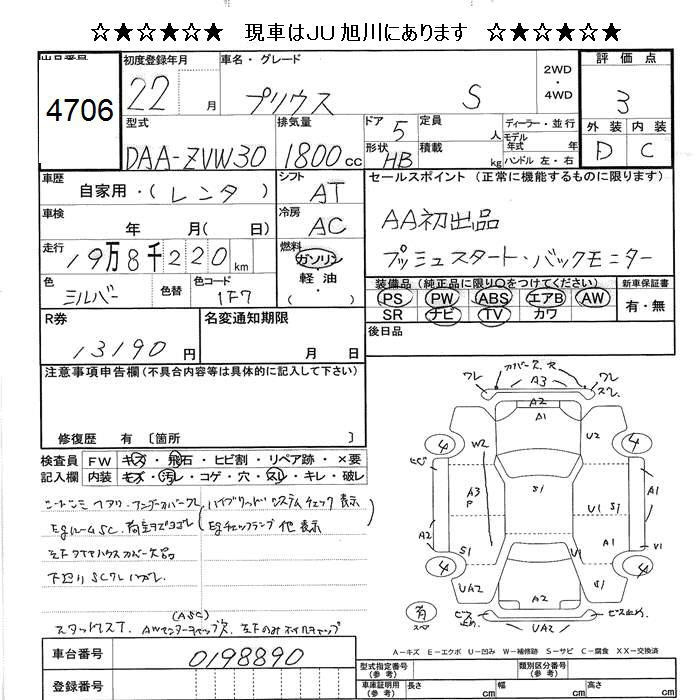 ☆★☆★☆★ 現車はJU旭川にあります ☆★☆★☆★
出品番号
4706
初度登録年月
22 月
車名・グレード
プリウス S
2WD
・
4WD
評価点
3
型式
DAA-ZVW30
排気量
1800cc
ドア 5
形状 HB
定員 人
積載 kg
ディーラー・並行
モデル年式 年式
ハンドル 左・右
外装 内装
D C
車歴
自家用・(レンタ)
シフト
AT
セールスポイント(正常に機能するものに限ります)
AA初出品
プッシュスタート・バックモニター
車検
年 月(日)
冷房
AC
走行
19万8千220km
燃料
ガソリン
軽・油
色
シルバー
色替
色コード
1F7
装備品(純正品に限り○をつけてください)
PS PW ABS エアB AW
SR ナビ TV カワ
新車保証書
有・無
R券
13190円
名変通知期限
月 日
後日品
注意事項申告欄(不具合内容等は具体的に記入して下さい)
修復歴 有 〔箇所 〕
検査員
記入欄
FW キズ・飛石・ヒビ割・リペア跡・×要
内装 キズ・汚レ・コゲ・穴・スレ・キレ・破レ
ハイブリッドシステムチェック表示
Egチェックランプ他表示
Egルーム SC.
左下タイヤハウスカバー欠品
下廻り SC
(ASC)
スタッドレスT. AWセンターキャップ欠.
カバー欠.
ワレ
A3
ワレ
スレ
A2
A1
4
U2
4
W2
A3
P
S1
U1 S1
A1
A2
S1
U1
A1
V1
4
UA2
A2
S1
4
UA2
ビス止め
ビス止ム
角
スペア
A-キズ E-エクボ U-凹み W-補修跡 S-サビ C-腐食 XX-交換済
車台番号
0198890
登録番号
型式指定番号
(参考)
類別区分番号
(参考)
車庫証明用
(参考)
長さ cm 幅 cm 高さ cm